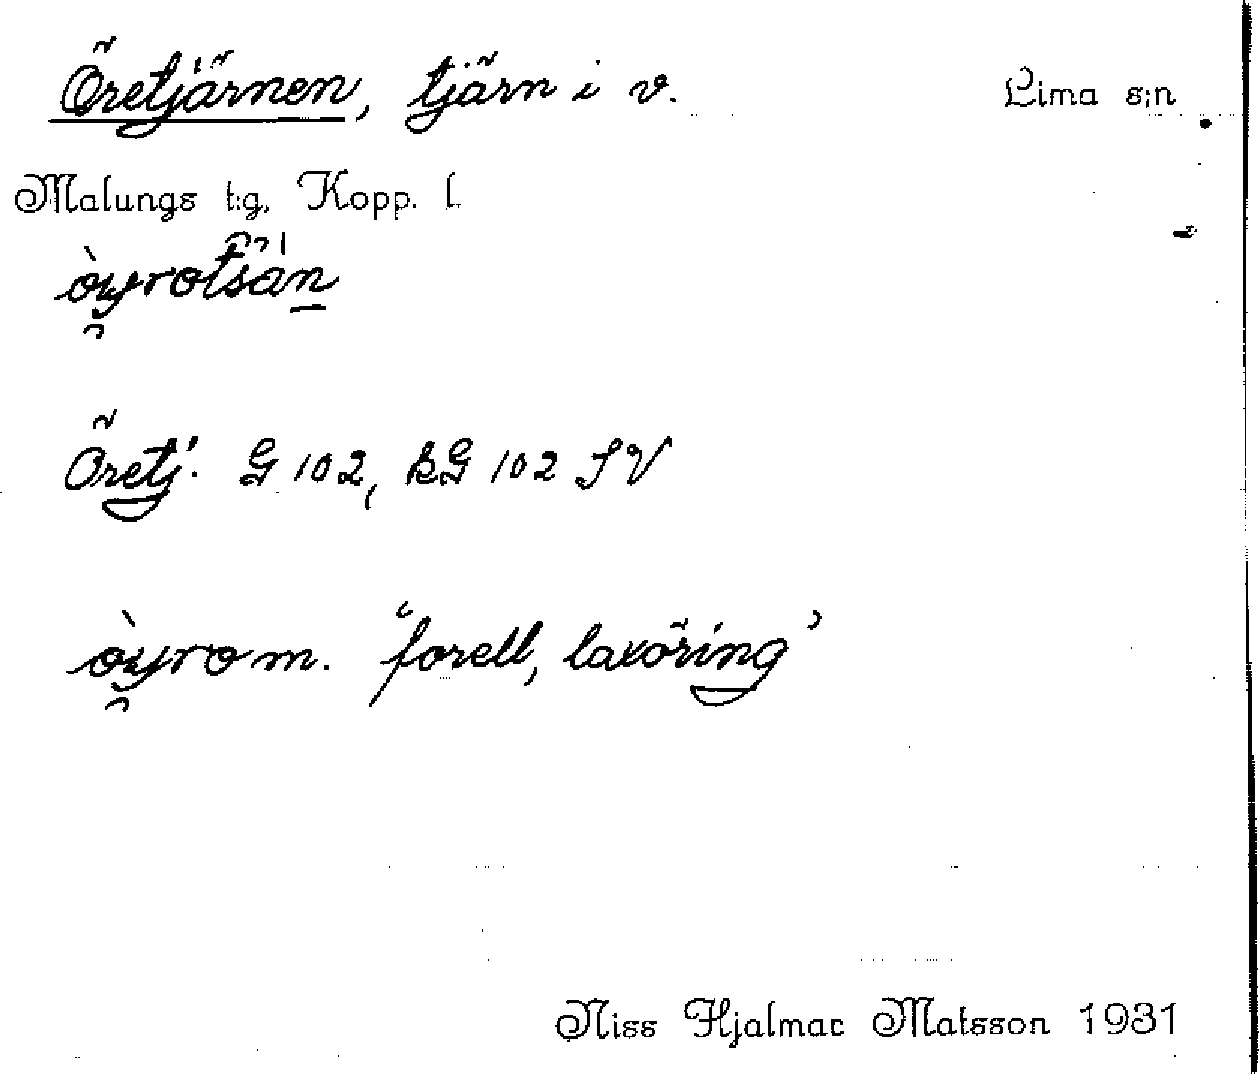 Öretjärnen, tjärn i v. Lima s:n
Malungs t:g. Kopp. l.
Öretj. G 102, kG 102 SV
m. "forell, laxöring"
Niss Hjalmar Matsson 1931